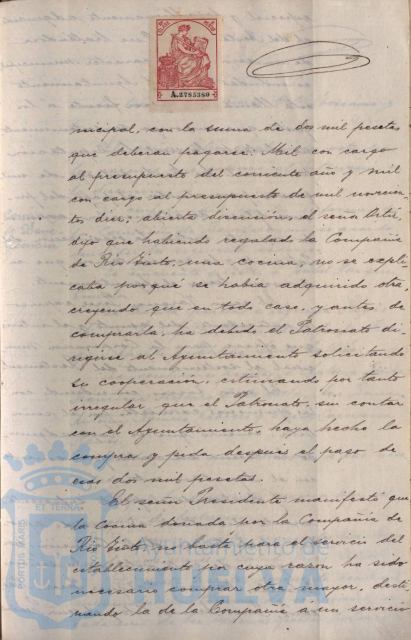 A.2785380
nicipal, con la suma de dos mil pesetas
que deberan pagarse: Mil con cargo
al presupuesto del corriente año y mil
con cargo al presupuesto de mil novecien-
tos diez; abierta discusión, el señor
dijo que habiendo regalado la Compañía
de Rio Tinto, una cocina, no se expli
caba porque se habia adquirido otra,
creyendo que en todo caso, y antes de
comprarla, ha debido el Patronato di
rigirse al Ayuntamiento solicitando
su cooperación, estimando por tanto
irregular que el Patronato, sin contar
con el Ayuntamiento, haya hecho la
compra y pida despues el pago de
esas dos mil pesetas.
El señor Presidente manifestó que
la Cocina donada por la Compañia de
Rio Tinto, no basta para el servicio del
establecimiento por cuya razon ha sido
necesario comprar otra mayor, desti
nando la de la Compañia á un servicio
PORTUS MARIS ET TERRÆ
Ayuntamiento de
HUELVA